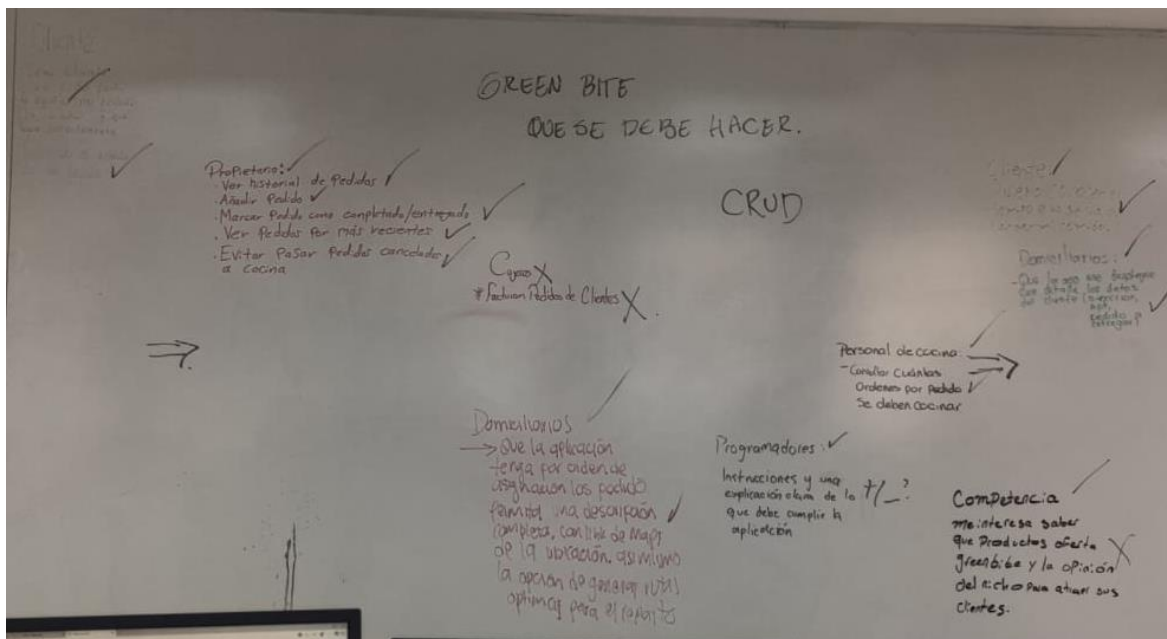 Cliente
GREEN BITE
QUE SE DEBE HACER.
CRUD
Propietario:
· Ver historial de Pedidos
· Añadir Pedido
· Marcar Pedido como completado/entregado
· Ver Pedidos Por más recientes
· Evitar Pasar Pedidos cancelados
a cocina
Cajeros X
* Facturan Pedidos de Clientes X
Domiciliarios:
- Que la app me despliegue
con detalle los datos
del cliente
pedido a
entregar)
Personal de cocina:
- Consultar Cuántas
Ordenes por pedido
Se deben Cocinar
Domiciliarios
→ Que la aplicación
tenga por orden de
asignación los pedido
una descripción
completa, con link de Maps
de la ubicación, asimismo
la opción de generar rutas
optimas para el reparto
Programadores:
Instrucciones y una
explicación clara de lo +/-?
que debe cumplir la
aplicación
Competencia
me interesa saber
que Productos oferta
greenbite y la opinión X
del nicho para atraer sus
clientes.